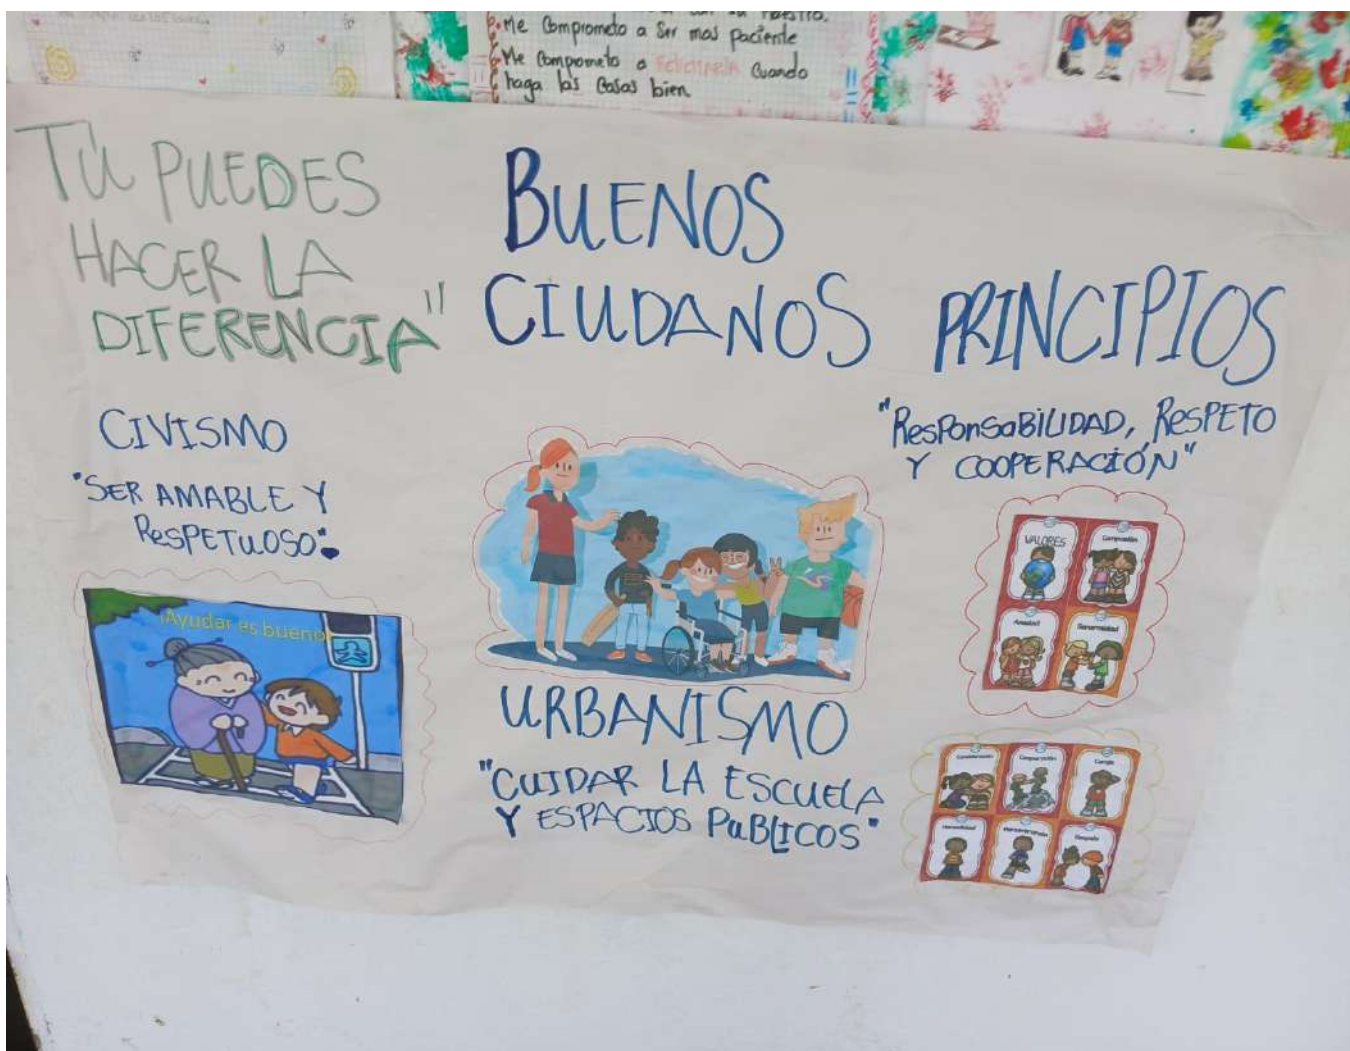 Me comprometo a Ser mas paciente
Me comprometo a Felicitarla Cuando
haga las Cosas bien
TÚ PUEDES
HACER LA
DIFERENCIA"
BUENOS
CIUDANOS
PRINCIPIOS
CIVISMO
"SER AMABLE Y
RESPETUOSO"
¡Ayudar es bueno!
URBANISMO
"CUIDAR LA ESCUELA
Y ESPACIOS PUBLICOS"
"RESPONSABILIDAD, RESPETO
Y COOPERACIÓN"
VALORES
Compasión
Amistad
Generosidad
Cooperación
Coraje
Honestidad
Perseverancia
Respeto